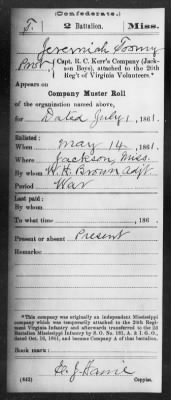 (Confederate.)
T. 2 Battalion. Miss.
Jeremiah Toomy
Priv., Capt. R. C. Kerr's Company (Jackson Boys), attached to the 20th Reg't of Virginia Volunteers.*
Appears on
Company Muster Roll
of the organization named above,
for Dated July 1, 1861.
Enlisted:
When May 14, 1861.
Where Jackson, Miss.
By whom W. H. Brown Adjt
Period War
Last paid:
By whom
To what time , 186 .
Present or absent Present
Remarks:
*This company was originally an independent Mississippi
company which was temporarily attached to the 20th Regi-
ment Virginia Infantry and afterwards transferred to the 2d
Battalion Mississippi Infantry by S. O. No. 181, A. & I. G. O.,
dated Oct. 16, 1861, and became Company A of that battalion.
Book mark:
(642) Copyist.